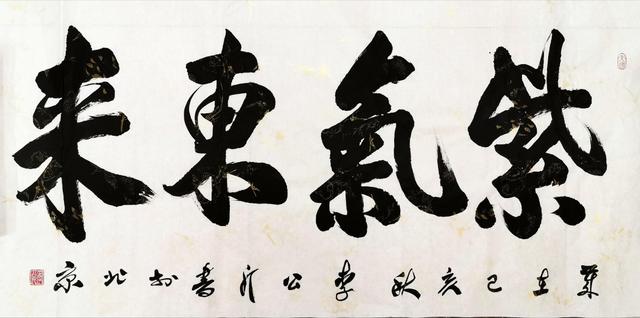 紫氣東来
歲在己亥秋李公書於北京